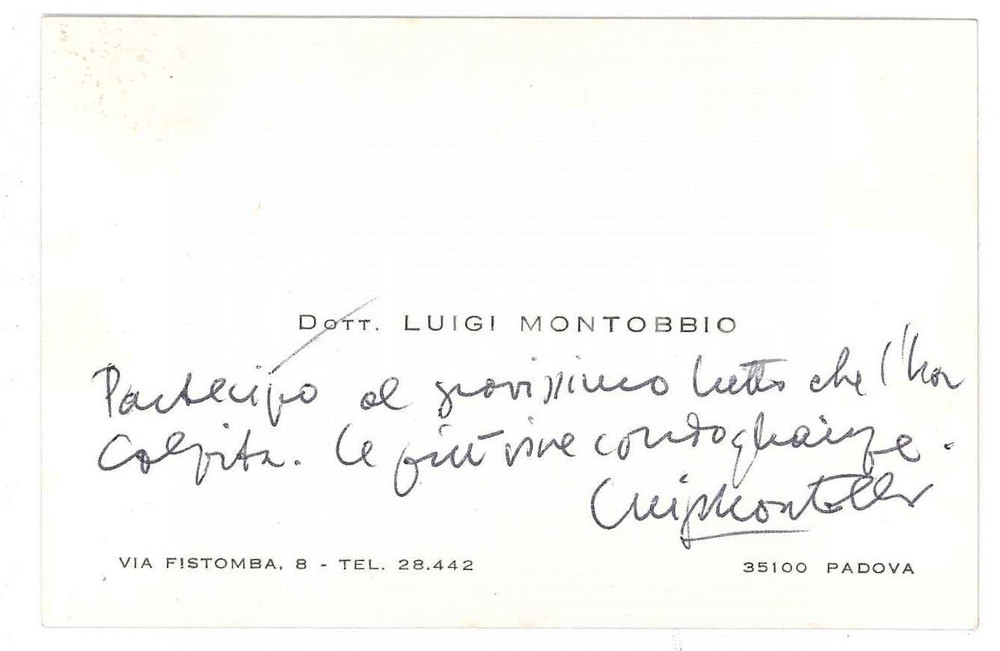 DOTT. LUIGI MONTOBBIO
Partecipo al gravissimo lutto che l'ha
colpita. Le più vive condoglianze.
Luigi Montobbio
VIA FISTOMBA, 8 - TEL. 28.442
35100 PADOVA